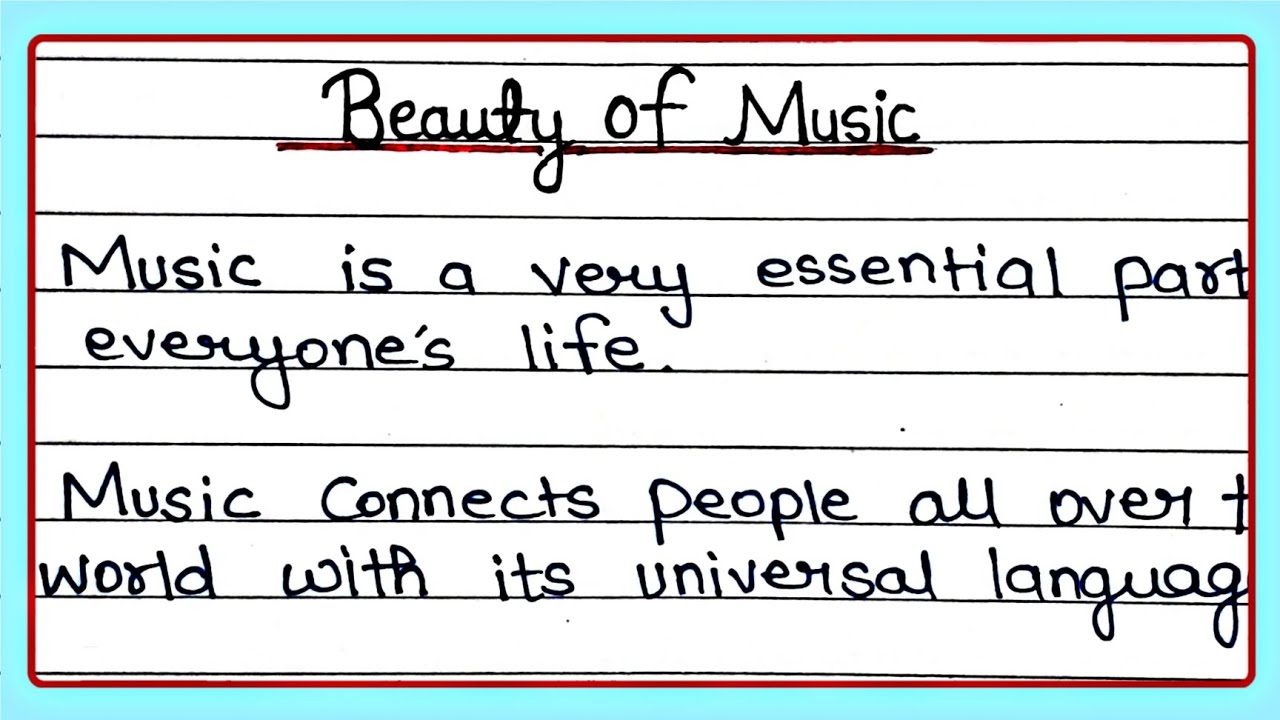 Beauty of Music
Music is a very essential part
everyone's life.
Music Connects people all over t
world with its universal languag